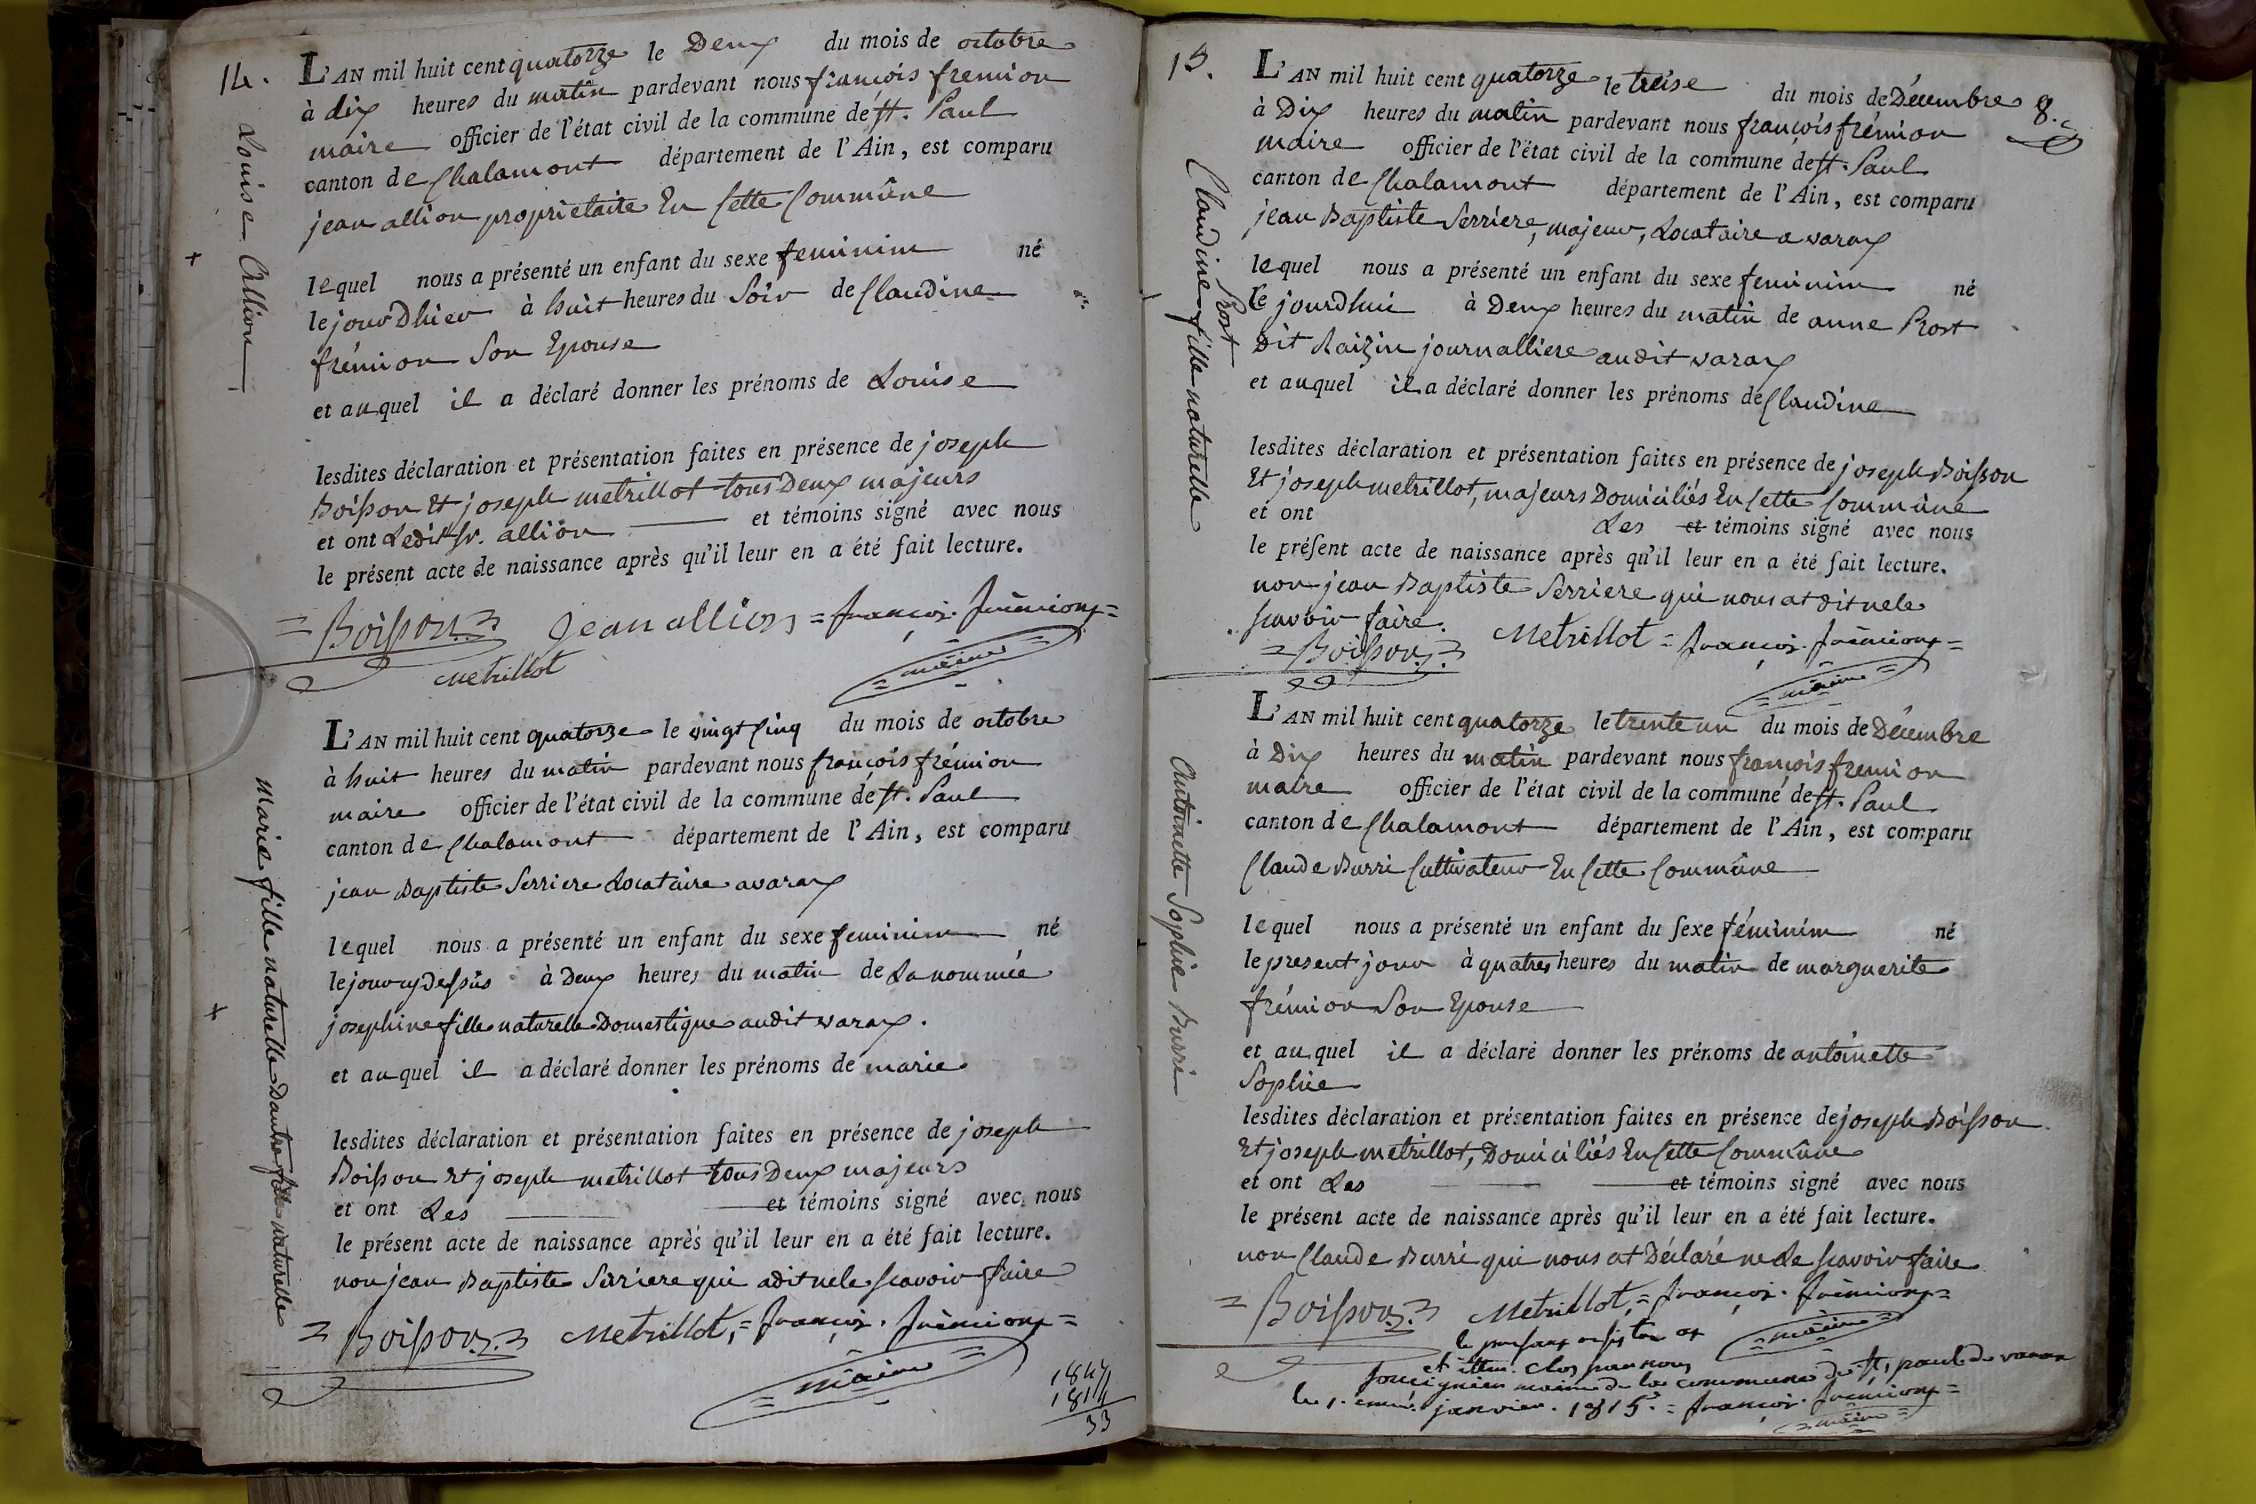 14.
L'AN mil huit cent quatorze le Deux du mois de octobre
à dix heures du matin pardevant nous françois fremion
maire officier de l'état civil de la commune de st. Paul
canton de Chalamont département de l'Ain, est comparu
jean allion proprietaire En Cette Commûne
lequel nous a présenté un enfant du sexe feminim né
le jour D'hier à huit heures du Soir de Claudine
frémion Son Epouse
et auquel il a déclaré donner les prénoms de Louise
lesdites déclaration et présentation faites en présence de joseph
Boisson Et joseph metrillot tous Deux majeurs
et ont Ledit Sr. allion et témoins signé avec nous
le présent acte de naissance après qu'il leur en a été fait lecture.
= Boisson jean allion = françois frèmion =
Metrillot = maire =
Louise Allion
L'AN mil huit cent quatorze le vingt Cinq du mois de octobre
à huit heures du matin pardevant nous françois frémion
maire officier de l'état civil de la commune de st. Paul
canton de Chalamont département de l'Ain, est comparu
jean Baptiste Serriere Locataire a varax
lequel nous a présenté un enfant du sexe feminim né
le jour cy Dessus à Deux heures du matin de La nommée
josephine fille naturelle Domestique audit varax.
et auquel il a déclaré donner les prénoms de marie
lesdites déclaration et présentation faites en présence de joseph
Boisson Et joseph metrillot tous Deux majeurs
et ont Les et témoins signé avec nous
le présent acte de naissance après qu'il leur en a été fait lecture.
non jean Baptiste Serriere qui a dit ne le scavoir faire
= Boisson Metrillot, = françois. frèmion =
= maire =
marie fille naturelle Dautre fille naturelle
1847
1814
33
15.
8.
L'AN mil huit cent quatorze le treise du mois de Décembre
à Dix heures du matin pardevant nous françois frémion
maire officier de l'état civil de la commune de st. Paul
canton de Chalamont département de l'Ain, est comparu
jean Baptiste Serriere, majeur, Locataire a varax
lequel nous a présenté un enfant du sexe feminim né
le jourdhui à Deux heures du matin de anne Rost
Dit Raizin journalliere audit varax
et auquel il a déclaré donner les prénoms de Claudine
lesdites déclaration et présentation faites en présence de joseph Boisson
Et joseph metrillot, majeurs Domiciliés En Cette Commune
et ont Les et témoins signé avec nous
le présent acte de naissance après qu'il leur en a été fait lecture.
non jean Baptiste Serriere qui nous at dit ne le
scavoir faire.
= Boisson Metrillot = françois. frèmion =
= maire =
Claudine Rost fille naturelle
L'AN mil huit cent quatorze le trente un du mois de Décembre
à Dix heures du matin pardevant nous françois fremion
maire officier de l'état civil de la commune de st. Paul
canton de Chalamont département de l'Ain, est comparu
Claude Burri Cultivateur En Cette Commûne
lequel nous a présenté un enfant du sexe féminim né
le present jour à quatres heures du matin de marguerite
frémion Son Epouse
et auquel il a déclaré donner les prénoms de antoinette
Sophie
lesdites déclaration et présentation faites en présence de joseph Boisson
Et joseph metrillot, Domiciliés En Cette Commûne
et ont Les et témoins signé avec nous
le présent acte de naissance après qu'il leur en a été fait lecture.
non Claude Burri qui nous at Déclaré ne Le scavoir faire
= Boisson Metrillot, = françois. frèmion =
= maire =
Antoinette Sophie Burri
le present registre at
clos par nous
maire de la commune de st, paul de varax
le 1. janvier. 1815. = françois. frèmion =
= maire =